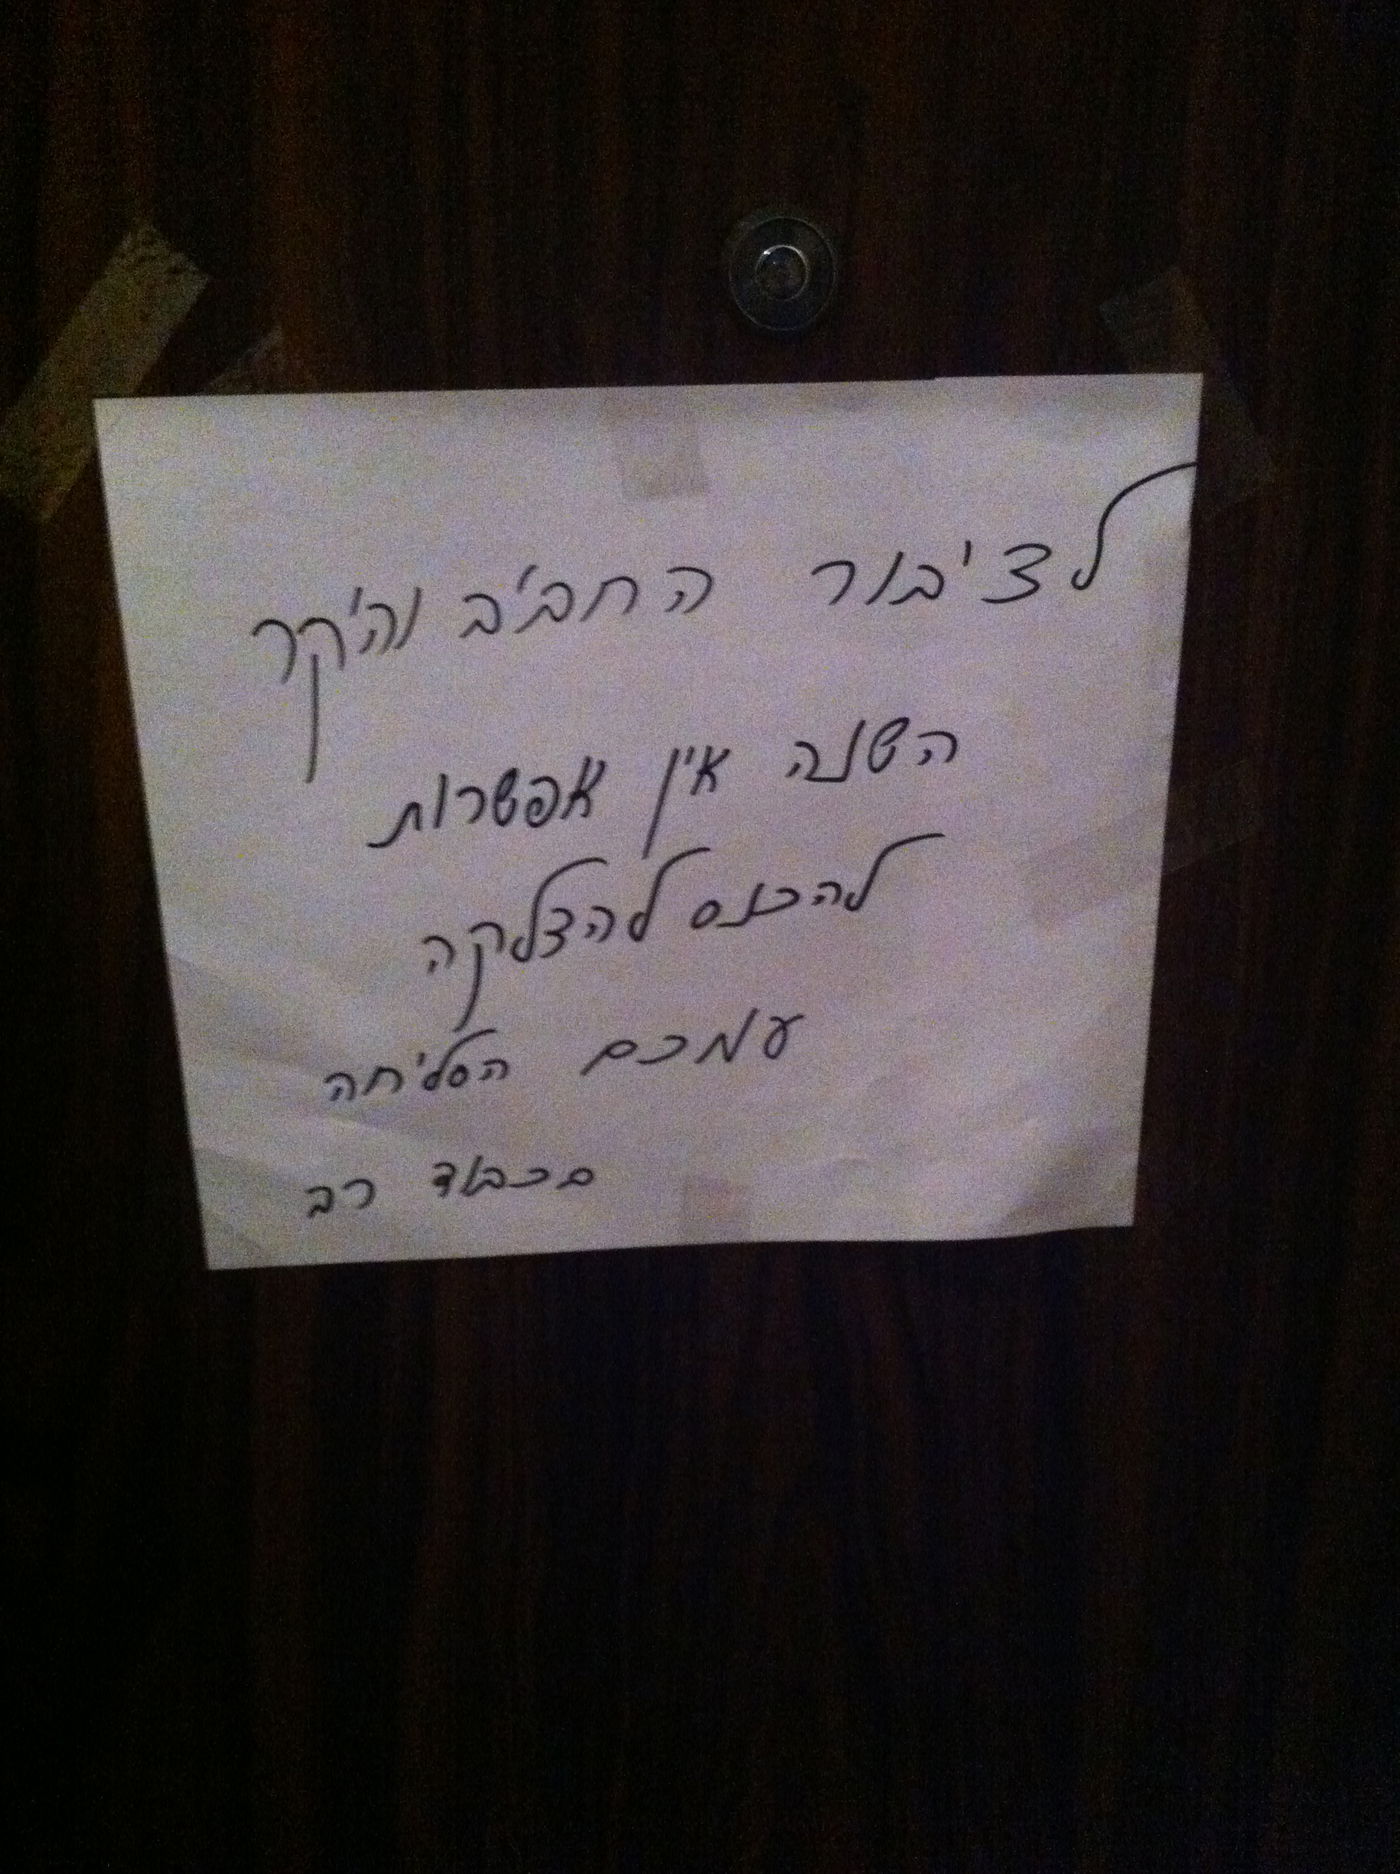 לציבור החביב והיקר
השנה אין אפשרות
להכנס להצלקה
עמכם הסליחה
בכבוד רב